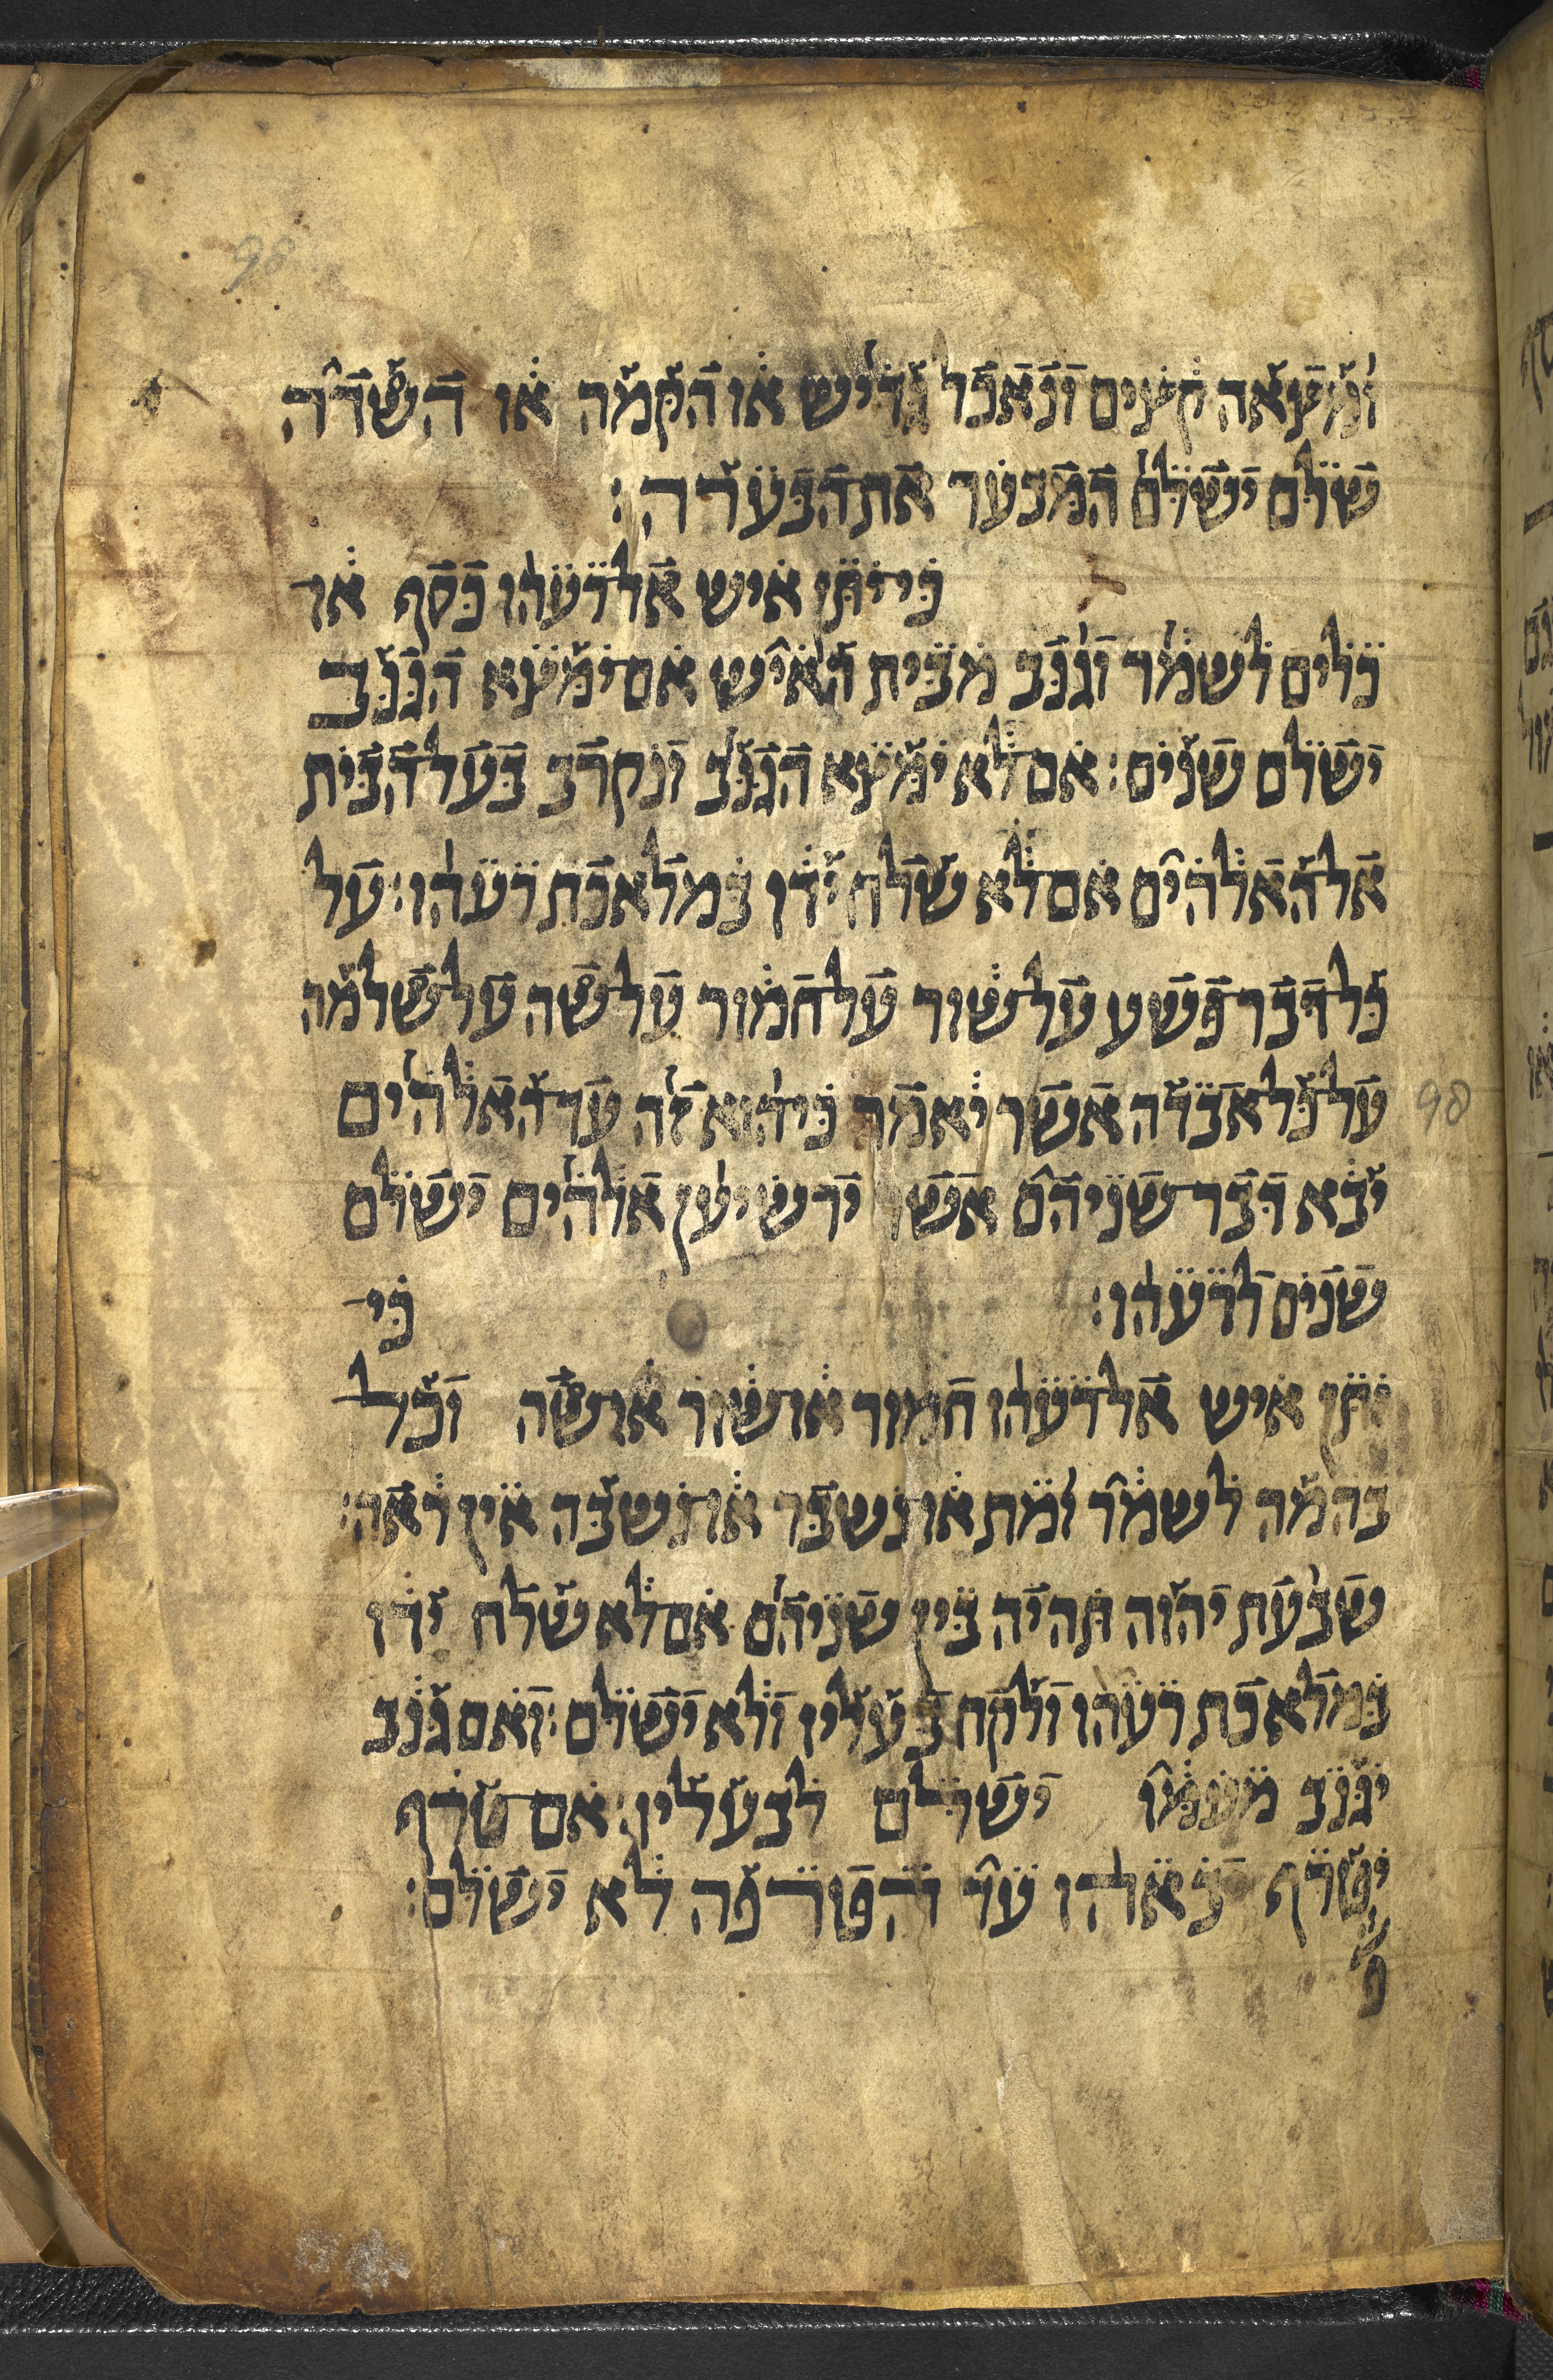 98
ומצאה קצים ונאכל גדיש או הקמה או השדה
שלם ישלם המבער את הבערה׃
כי־יתן איש אל־רעהו כסף או
כלים לשמר וגנב מבית האיש אם־ימצא הגנב
ישלם שנים׃ אם־לא ימצא הגנב ונקרב בעל־הבית
אל־האלהים אם־לא שלח ידו במלאכת רעהו׃ על
כל־דבר־פשע על־שור על־חמור על־שה על־שלמה
על־כל־אבדה אשר יאמר כי־הוא זה עד האלהים
יבא דבר־שניהם אשר ירשיען אלהים ישלם
שנים לרעהו׃ כי־
יתן איש אל־רעהו חמור או־שור או־שה וכל־
בהמה לשמר ומת או־נשבר או־נשבה אין ראה׃
שבעת יהוה תהיה בין שניהם אם־לא שלח ידו
במלאכת רעהו ולקח בעליו ולא ישלם׃ ואם גנב
יגנב מעמו ישלם לבעליו׃ אם־טרף
יטרף יבאהו עד הטרפה לא ישלם׃
98